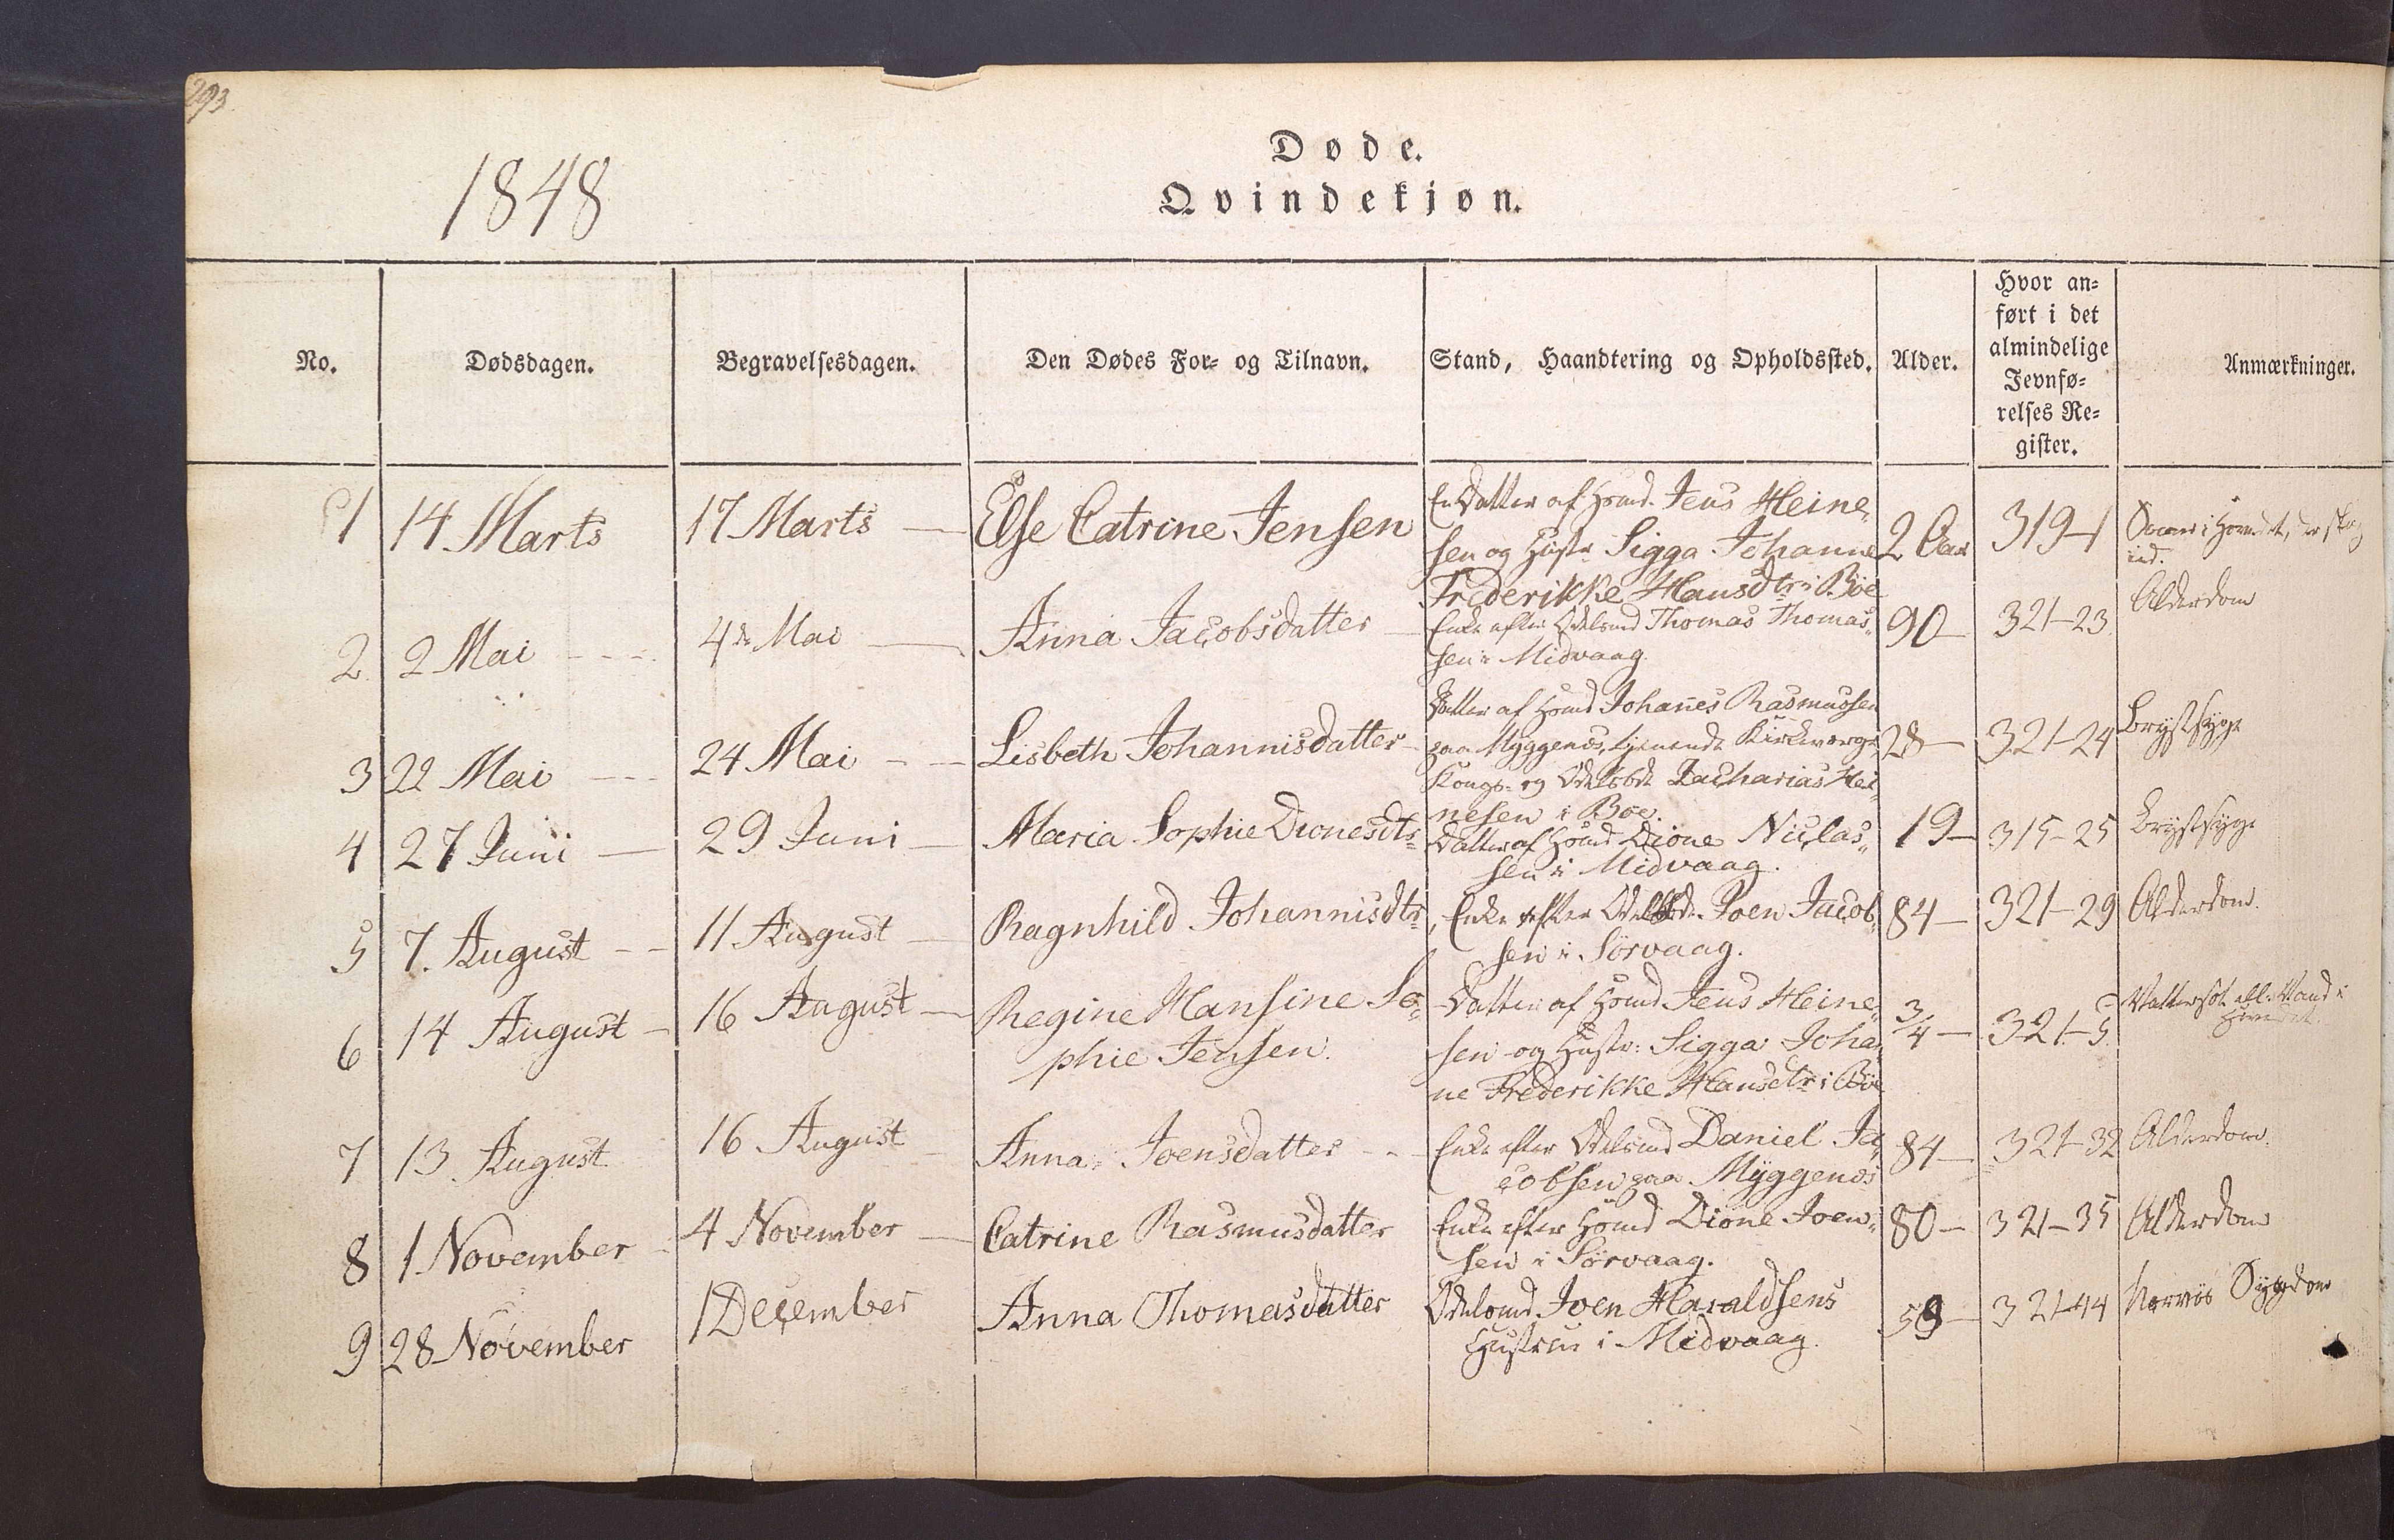 293.
1848
Døde.
Qvindekjøn.
No.
Dødsdagen.
Begravelsesdagen.
Den Dødes For- og Tilnavn.
Stand, Haandtering og Opholdssted.
Alder.
Hvor an-
ført i det
almindelige
Jevnfø-
relses Re-
gister.
Anmærkninger.
1 14 Marts 17 Marts — Else Catrine Jensen
En Datter af Hsmd. Jens Heine-
sen og Hustr. Sigga Johanne
Frederikke Hansdtr i Böe
2 Aar 319-1
Saar i Hovedet, der slog
ind.
2. 2 Mai - - - 4de Mai — Anna Jacobsdatter —
Enke efter Odelsmd Thomas Thomas-
sen i Midvaag.
90— 321-23. Alderdom
3 22 Mai - - - 24 Mai - - Lisbeth Johannisdatter -
Datter af Hsmd Johannes Rasmussen
paa Myggenes, tjenende Kirkeværge
Kongs- og Odelsbde Zacharias Hei-
nesen i Böe.
28— 321-24 Brystsyge
4 27 Juni — 29 Juni — Maria Sophie Dionesdtr
Datter af Hsmd Dione Niclas-
sen i Midvaag.
19— 315-25 Brystsyge
5 7. August - - 11 August — Ragnhild Johannisdtr
Enke efter Joen Jacob-
sen i Sörvaag.
84— 321-29 Alderdom.
6 14 August - 16 August — Regine Hansine So-
phie Jensen.
Datter af Hsmd Jens Heine-
sen og Hustr: Sigga Johan-
ne Frederikke Hansdtr i Böe
3/4 — 321-5
Vattersot ell. Vand i
Hovedet.
7 13 August. 16 August Anna Joensdatter - -
Enke efter Odelsmd Daniel Ja-
cobsen paa Myggenes
84— 321-32 Alderdom.
8 1 November - 4 November — Catrine Rasmusdatter
Enke efter Hsmd Dione Joen-
sen i Sörvaag.
80— 321-35 Alderdom
9 28 November 1 December Anna Thomasdatter
Odelsmd. Joen Haraldsens
Hustrue i Midvaag.
58— 321-44 Nervös Sygdom